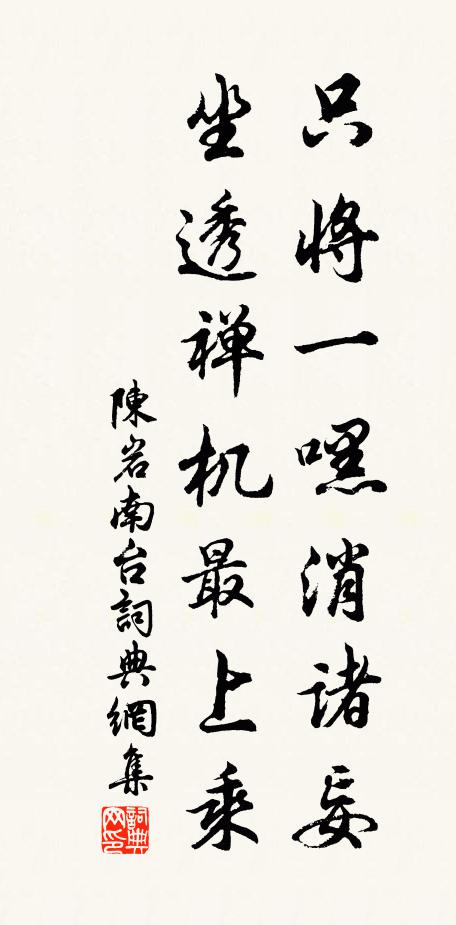 只将一嘿消諸妄
坐透禅机最上乘
陳岩南台詞典網集
詞典网印